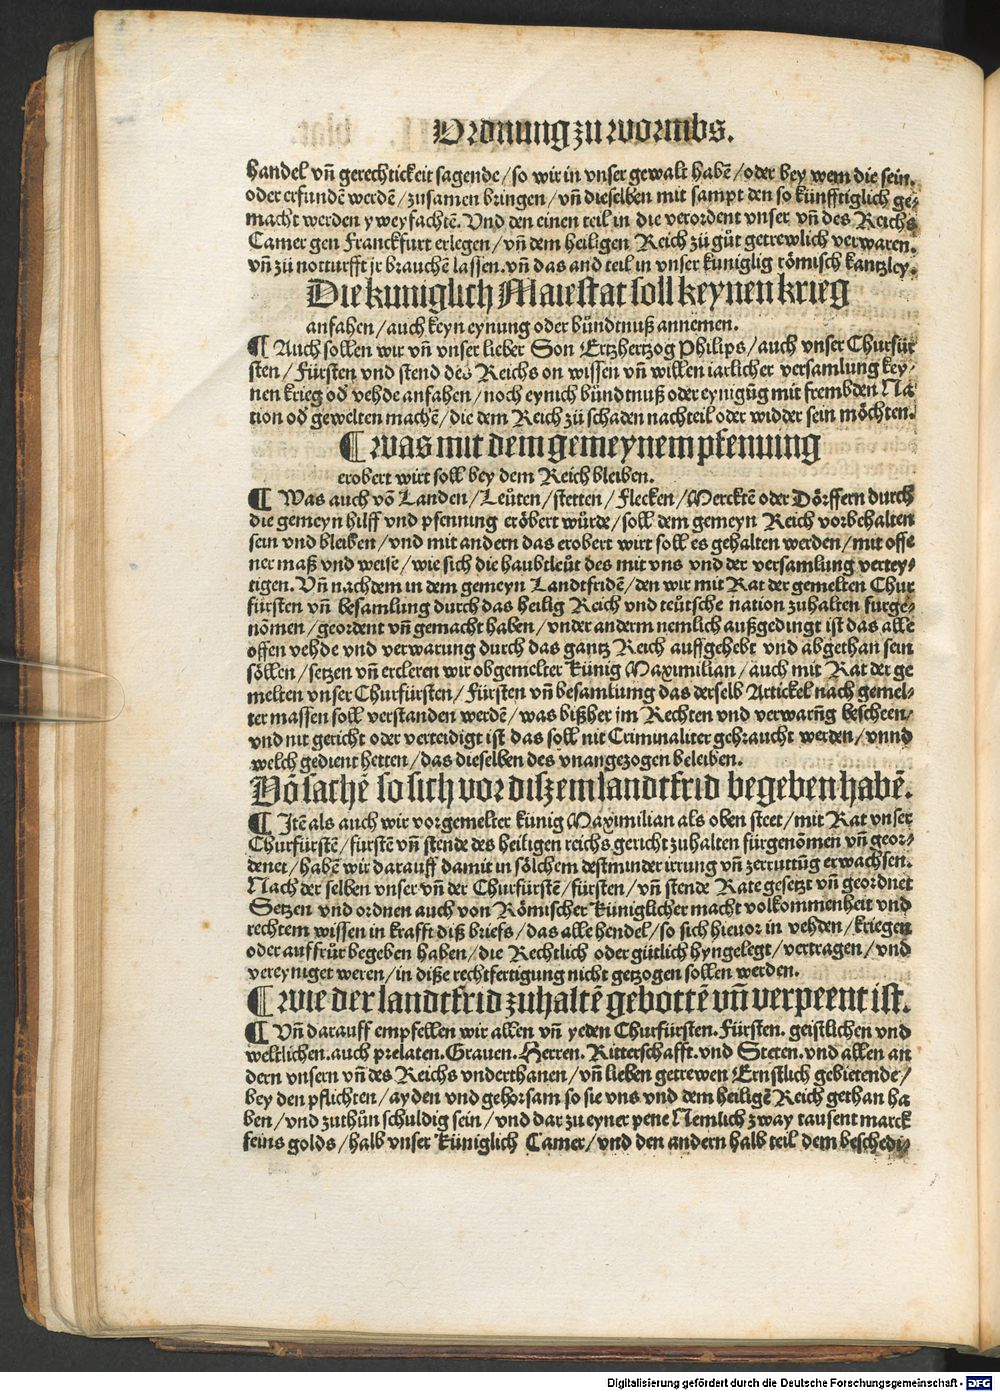 Ordnung zu wormbs.
handel vñ gerechtickeit sagende/so wir in vnser gewalt habē/oder bey wem die sein.
oder erfundē werdē/zusamen bringen/vñ dieselben mit sampt den so künfftiglich ge⸗
macht werden yweyfachtē. Vnd den einen teil in die verordent vnser vñ des Reichs
Camer gen Franckfurt erlegen/vñ dem heiligen Reich zů gůt getrewlich verwaren.
vñ zů notturfft jr brauchē lassen. vñ das and teil in vnser kuniglig römisch kantzley.
Die kuniglich Maiestat soll keynen krieg
anfahen/auch keyn eynung oder bündtnuß annemen.
¶ Auch sollen wir vñ vnser lieber Son Ertzhertzog Philips/auch vnser Churfür
sten/Fürsten vnd stend des Reichs on wissen vñ willen iarlicher versamlung key⸗
nen krieg od vehde anfahen/noch eynich bündtnuß oder eynigūg mit frembden Na
tion od gewelten machē/die dem Reich zů schaden nachteil oder widder sein möchten.
¶ was mit dem gemeynem pfennung
erobert wirt soll bey dem Reich bleiben.
¶ Was auch vō Landen/Leüten/stetten/Flecken/Mercktē oder Dörffern durch
die gemeyn hilff vnd pfenning eröbert würde/soll dem gemeyn Reich vorbehalten
sein vnd bleiben/vnd mit andern das erobert wirt soll es gehalten werden/mit offe
ner maß vnd weise/wie sich die haubtleüt des mit vns vnd der versamlung vertey⸗
tigen. Vñ nachdem in dem gemeyn Landtfridē/den wir mit Rat der gemelten Chur
fürsten vñ besamlung durch das heilig Reich vnd teütsche nation zuhalten furge⸗
nōmen/geordent vñ gemacht haben/vnder anderm nemlich außgedingt ist das alle
offen vehde vnd verwarung durch das gantz Reich auffgehebt vnd abgethan sein
söllen/setzen vñ ercleren wir obgemelter Künig Maximilian/auch mit Rat der ge
melten vnser Churfürsten/Fürsten vñ besamlung das derselb Artickel nach gemel⸗
ter massen soll verstanden werdē/was bißher jm Rechten vnd verwarūg bescheen/
vnd nit gericht oder verteidigt ist das soll nit Criminaliter gebraucht werden/vnnd
welch gedient hetten/das dieselben des vnangezogen beleiben.
Vō sachē so sich vor diszem landtfrid begeben habē.
¶ Itē als auch wir vorgemelter künig Maximilian als oben steet/mit Rat vnser
Churfürstē/fürstē vñ stende des heiligen reichs gericht zuhalten fürgenōmen vñ geor⸗
denet/habē wir darauff damit in sölchem destminder irrung vñ zerruttūg erwachsen.
Nach der selben vnser vñ der Churfürstē/fürsten/vñ stende Rate gesetzt vñ geordnet
Setzen vnd ordnen auch von Römischer Küniglicher macht volkommenheit vnd
rechtem wissen in krafft diß briefs/das alle hendel/so sich hieuor in vehden/kriegen
oder auffrůr begeben haben/die Rechtlich oder gütlich hyngelegt/vertragen/vnd
vereyniget weren/in diße rechtfertigung nicht getzogen sollen werden.
¶ wie der landtfrid zuhaltē gebottē vñ verpeent ist.
¶ Vñ darauff empfellen wir allen vñ yeden Churfürsten. Fürsten. geistlichen vnd
weltlichen. auch prelaten. Grauen. Herren. Ritterschafft. vnd Steten. vnd allen an
dern vnsern vñ des Reichs vnderthanen/vñ lieben getrewen Ernstlich gebietende/
bey den pflichten/ayden vnd gehorsam so sie vns vnd dem heiligē Reich gethan ha
ben/vnd zuthůn schuldig sein/vnd dar zu eyner pene Nemlich zway tausent marck
feins golds/halb vnser Küniglich Camer/vnd den andern halb teil dem beschedi⸗
Digitalisierung gefördert durch die Deutsche Forschungsgemeinschaft - DFG